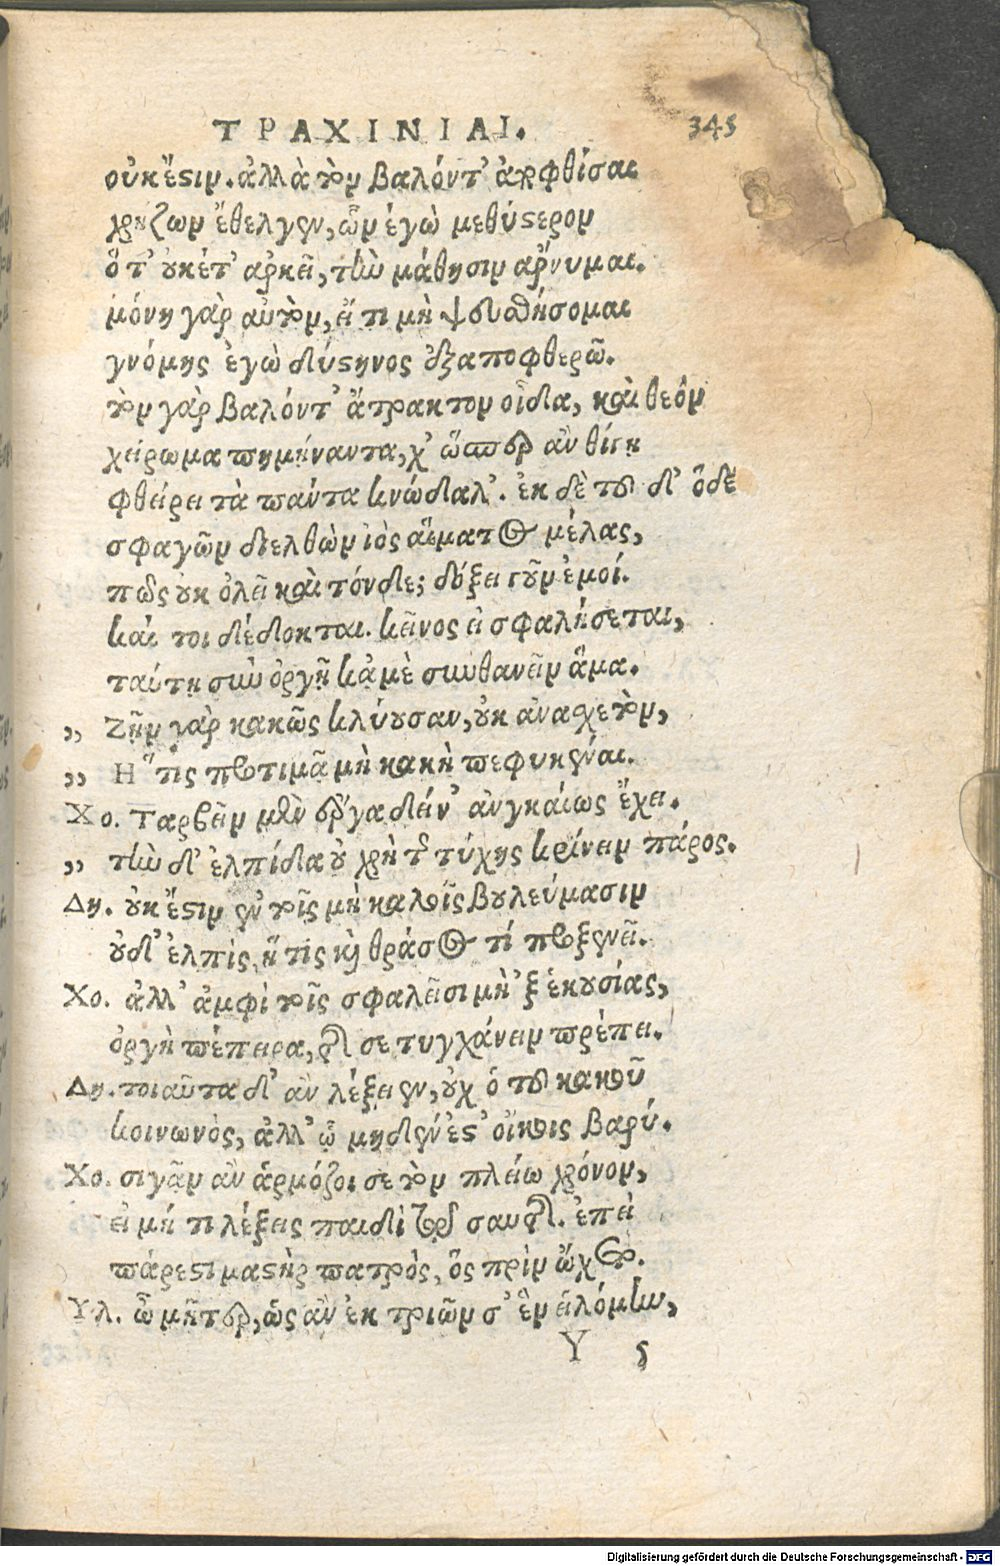 ΤΡΑΧΙΝΙΑΙ. 345
οὐκ ἔϛιν. ἀλλὰ τὸν βαλόντ' ἀποφθίσαι
χρῄζων ἔθελγεν, ὧν ἐγὼ μεθύϛερον
ὅτ' οὐκέτ' ἀρκεῖ, τὴν μάθησιν ἄρνυμαι.
μόνη γὰρ αὐτὸν, εἴ τι μὴ ψευσθήσομαι
γνόμης ἐγὼ δύϛηνος ἐξαποφθερῶ.
τὸν γὰρ βαλόντ' ἄτρακτον οἶδα, καὶ θεὸν
χείρωνα πημήναντα, χ' ὥσπερ ἂν θίγῃ
φθείρει τὰ πάντα κνώδαλ'. ἐκ δὲ τοῦ δ' ὅδε
σφαγῶν διελθὼν ἰὸς αἵματος μέλας,
πῶς οὐκ ὀλεῖ καὶ τόνδε; δόξει γοῦν ἐμοί.
καί τοι δέδοκται. κεῖνος εἰ σφαλήσεται,
ταύτῃ σὺν ὀργῇ κᾀμὲ συνθανεῖν ἅμα.
,, Ζῆν γὰρ κακῶς κλύουσαν, οὐκ ἀνασχετὸν,
,, Η ῞τις προτιμᾷ μὴ κακὴ πεφυκέναι.
Χο. Ταρβεῖν μὲν ἔργα δείν' ἀνγκαίως ἔχει.
,, τὴν δ' ἐλπίδα οὐ χρὴ τῆς τύχης κρίνειν πάρος.
Δη. οὐκ ἔϛιν ἐν τοῖς μὴ καλοῖς βουλεύμασιν
οὐδ' ἐλπὶς, ἥ τις καὶ θράσος τί προξενεῖ.
Χο. ἀλλ' ἀμφὶ τοῖς σφαλεῖσι μὴ 'ξ ἑκουσίας,
ὀργὴ πέπειρα, τῆς σε τυγχάνειν πρέπει.
Δη. τοιαῦτα δ' ἂν λέξειεν, οὐχ ὁ τοῦ κακοῦ
κοινωνὸς, ἀλλ' ᾧ μηδέν ἐϛ' οἴκοις βαρύ.
Χο. σιγᾷν ἂν ἁρμόζοι σε τὸν πλείω χρόνον,
εἰ μή τι λέξεις παιδὶ τῷ σαυτῆς. ἐπεὶ
πάρεϛι μαϛὴρ πατρὸς, ὃς πρὶν ᾤχετο.
Υλ. ὦ μῆτερ, ὡς ἂν ἐκ τριῶν σ' ἓν εἱλόμην,
Υ ϛ
Digitalisierung gefördert durch die Deutsche Forschungsgemeinschaft - DFG